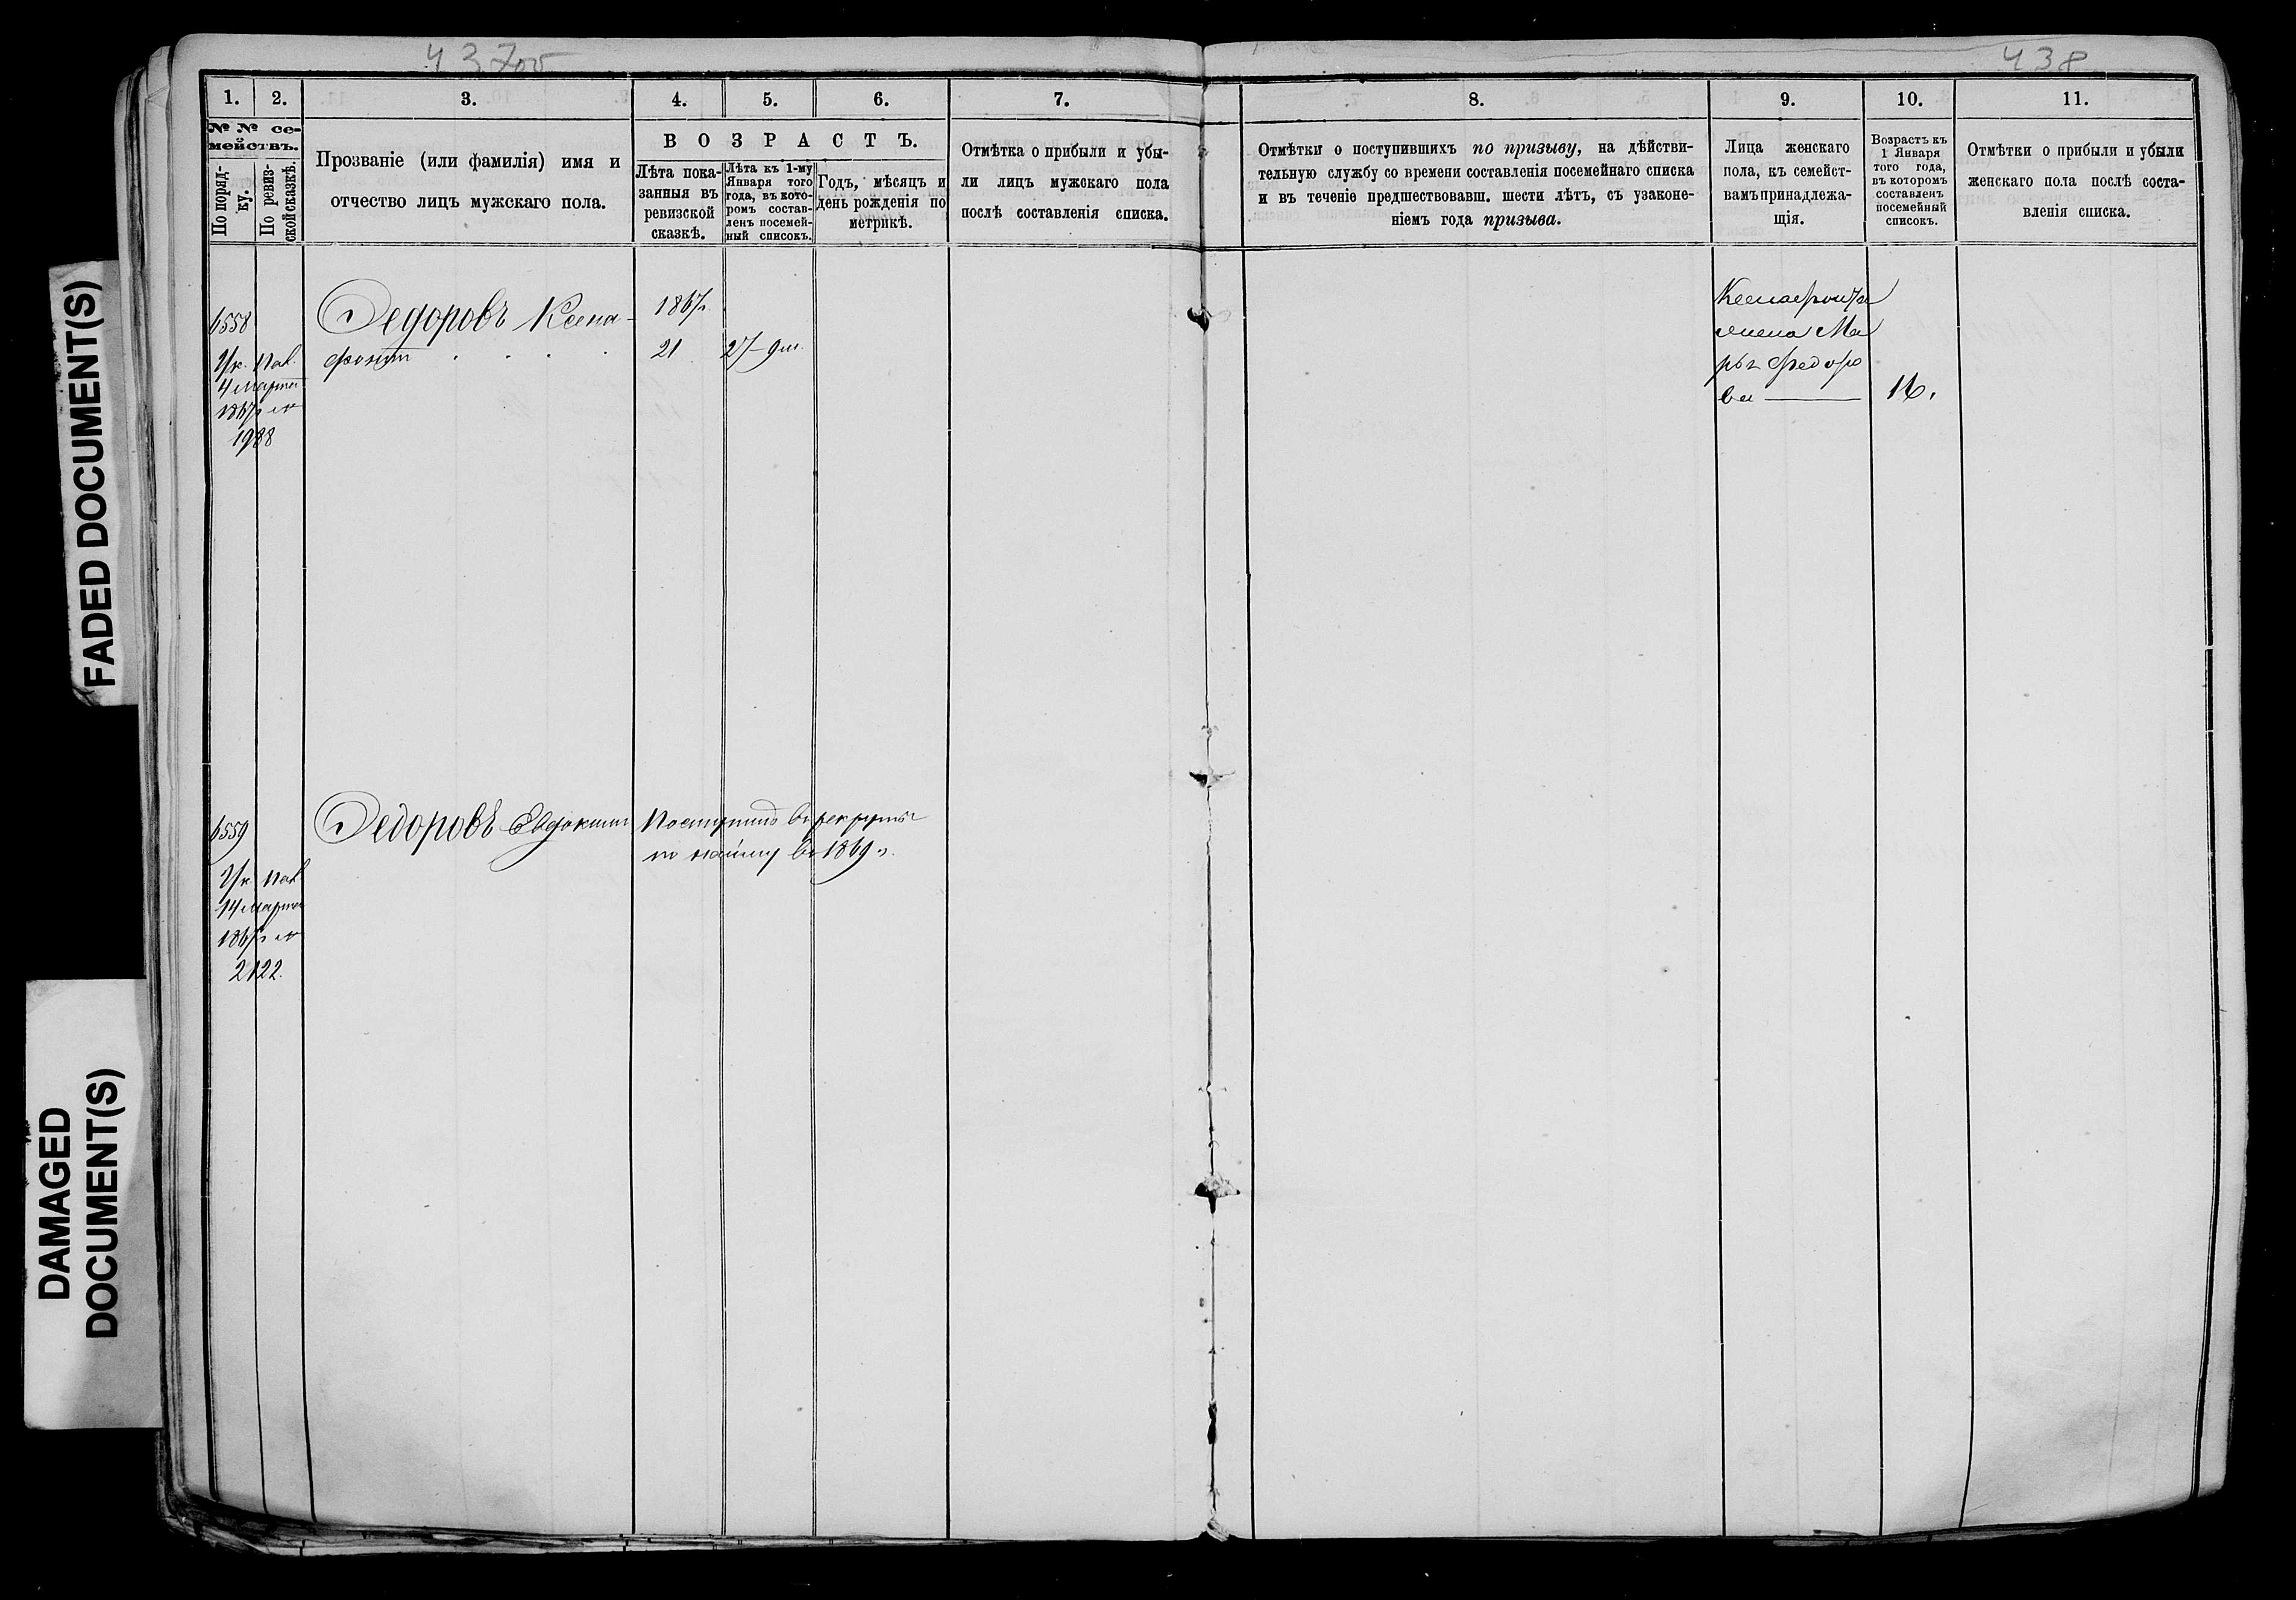 437об
438
FADED DOCUMENT(S)
DAMAGED
DOCUMENT(S)
1.
2.
3.
4.
5.
6.
7.
№ № се-
мействъ.
По поряд-
ку.
По ревиз-
ской сказкѣ.
Прозваніе (или фамилія) имя и
отчество лицъ мужскаго пола.
ВОЗРАСТЪ.
Лѣта пока-
занныя въ
ревизской
сказкѣ.
Лѣта къ 1-му
Января того
года, въ кото-
ромъ состав-
ленъ посемей-
ный списокъ.
Годъ, мѣсяцъ и
день рожденія по
метрикѣ.
Отмѣтка о прибыли и убы-
ли лицъ мужскаго пола
послѣ составленія списка.
6558
Ук. Пал.
4 марта
1867 г №
1988
Федоровъ Ксено-
фонт
1867г
21
27–9 м.
6559
Ук. Пал
14 марта
1867 г №
2122.
Федоровъ Евдоким
Поступилъ в рекруты
по найму в 1869 г.
8.
9.
10.
11.
Отмѣтки о поступившихъ по призыву, на дѣйстви-
тельную службу со времени составленія посемейнаго списка
и въ теченіе предшествовавш. шести лѣтъ, съ узаконе-
ніемъ года призыва.
Лица женскаго
пола, къ семейст-
вамъ принадлежа-
щія.
Возрастъ къ
1 Января
того года,
въ которомъ
составленъ
посемейный
списокъ.
Отмѣтки о прибыли и убыли
женскаго пола послѣ соста-
вленія списка.
Ксенофонта
жена Ма
рья Федоро
ва
16.